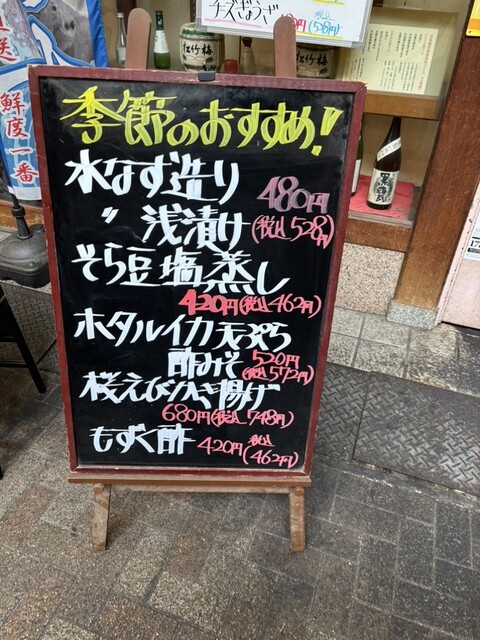 チーズぎょうざ
(528円)
松竹梅
松竹梅
直送
鮮度一番
季節のおすすめ!
水なす造り
〃 浅漬け
480円
(税込528円)
そら豆塩蒸し
420円(税込462円)
ホタルイカ天ぷら
酢みそ 520円
(税込572円)
桜えびかき揚げ
680円(税込748円)
もずく酢 420円(税込462円)